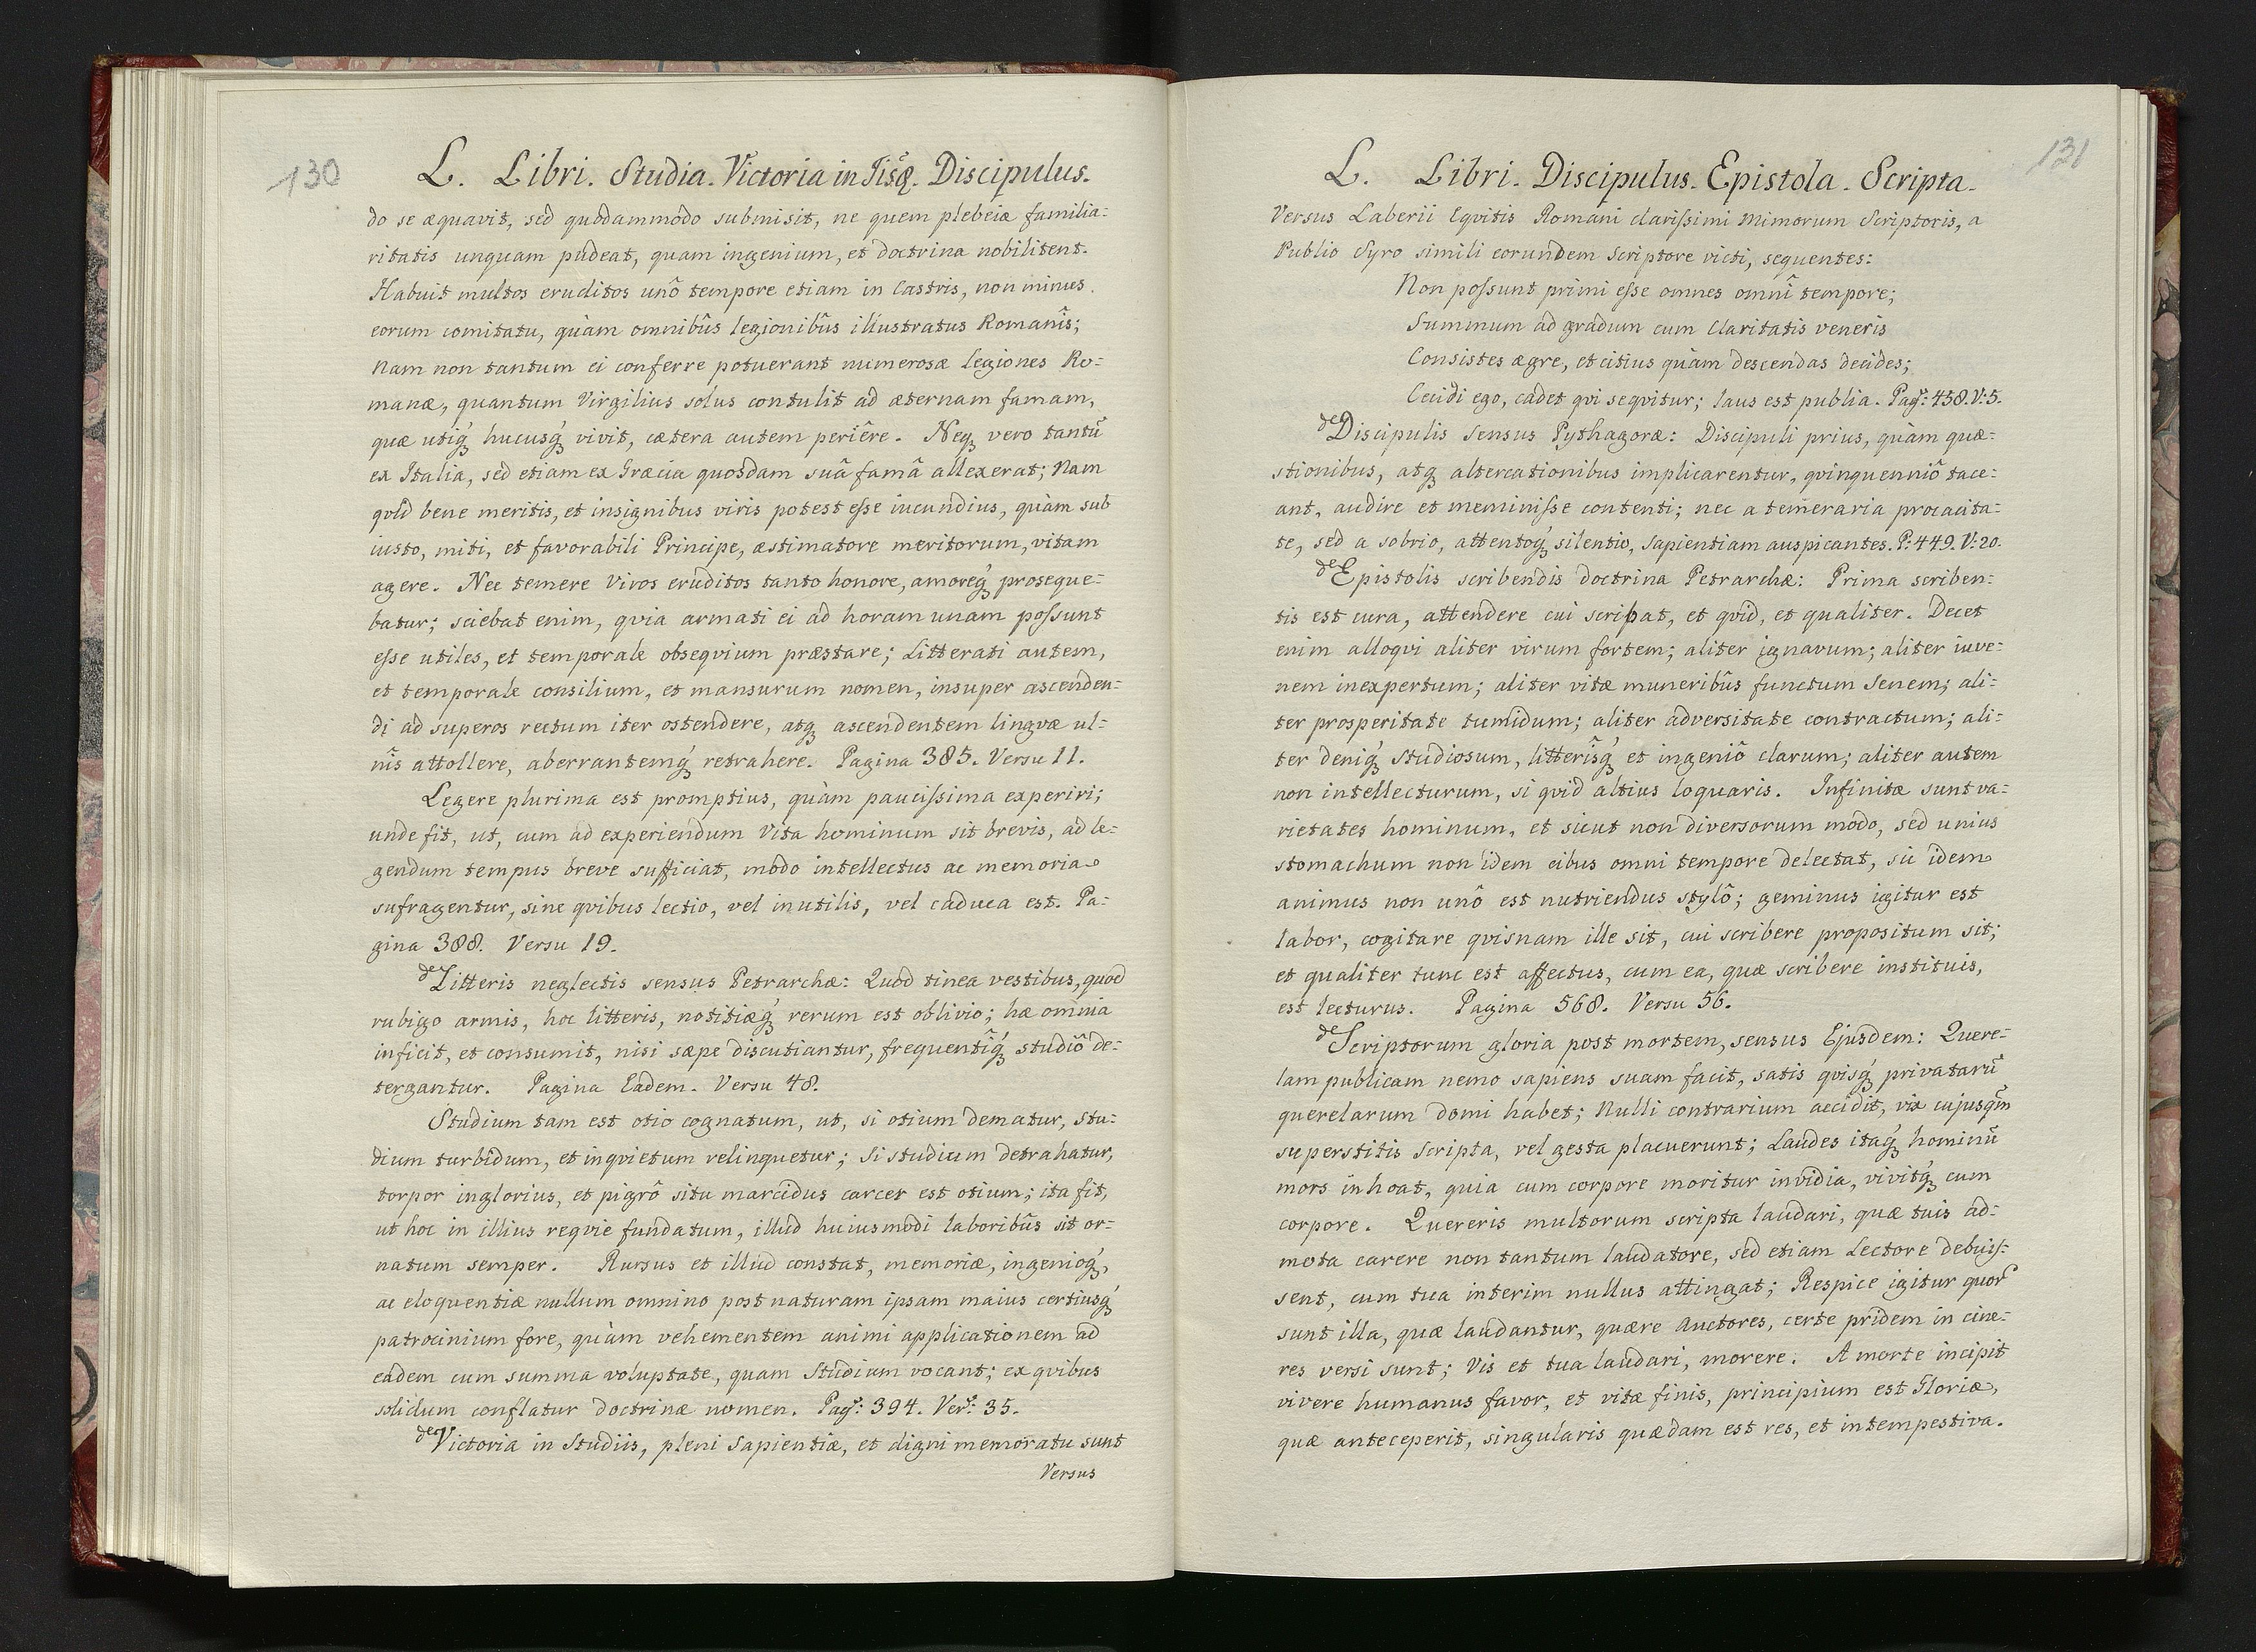 130
L. Libri. Studia. Victoria in Iisq́. Discipulus.
do se æquavit, sed quodammodo submisit, ne quem plebeiæ familia:
ritatis unquam pudeat, quam ingenium, et doctrina nobilitent.
Habuit multos eruditos unô tempore etiam in Castris, non minus
eorum comitatu, quàm omnibûs legionibûs illustratus Romanîs;
Nam non tantum ei conferre potuerant numerosæ legiones Ro:
manæ, quantum Virgilius solus contulit ad æternam famam,
quæ utiq́ hucusq́ vivit, cætera autem periêre. Neq vero tantũ
ex Italia, sed etiam ex Græcia quosdam suâ famâ allexerat; Nam
qvid bene meritis, et insignibus viris potest eſse iucundius, quàm sub
iusto, miti, et favorabili Principe, æstimatore meritorum, vitam
agere. Nec temere Viros eruditos tanto honore, amoreq́ proseque:
batur; sciebat enim, qvia armati ei ad horam unam poſsunt
eſse utiles, et temporale obseqvium præstare; Litterati autem,
et temporale consilium, et mansurum nomen, insuper ascenden:
di ad superos rectum iter ostendere, atq ascendentem lingvæ ul:
nîs attollere, aberrantemq́ retrahere. Pagina 385. Versu 11.
Legere plurima est promptius, quàm pauciſsima experiri;
unde fit, ut, cum ad experiendum Vita hominum sit brevis, ad le:
gendum tempus breve sufficiat, modo intellectus ac memoria
sufragentur, sine qvibus lectio, vel inutilis, vel caduca est. Pa:
gina 388. Versu 19.
de Litteris neglectis sensus Petrarchæ: Quod tinea vestibus, quod
rubigo armis, hoc litteris, notitiæq́ rerum est oblivio; hæ omnia
inficit, et consumit, nisi sæpe discutiantur, frequentîq́ studiô de:
tergantur. Pagina Eadem. Versu 48.
Studium tam est otio cognatum, ut, si otium dematur, stu:
dium turbidum, et inqvietum relinquetur; si studium detrahatur,
torpor inglorius, et pigrô situ marcidus carcer est otium; ita fit,
ut hoc in illius reqvie fundatum, illud huiusmodi laboribûs sit or:
natum semper. Rursus et illud constat, memoriæ, ingenioq́,
ac eloquentiæ nullum omnino post naturam ipsam maius certiusq́
patrocinium fore, quàm vehementem animi applicationem ad
eadem cum summa voluptate, quam Studium vocant; ex qvibus
solidum conflatur doctrinæ nomen. Pag: 394. Ver: 35.
de Victoria in Studiis, pleni sapientiæ, et digni memoratu sunt
Versus
131
L. Libri. Discipulus. Epistola. Scripta.
Versus Laberii Eqvitis Romani clariſsimi Mimorum Scriptoris, a
Publio Syro simili eorundem Scriptore victi, sequentes:
Non poſsunt primi eſse omnes omnî tempore;
Summum ad gradum cum Claritatis veneris
Consistes ægre, et citius quàm descendas decides;
Cecidi ego, cadet qvi seqvitur; laus est publia. Pag: 458. V: 5.
de Discipulis sensus Pythagoræ: Discipuli prius, quàm quæ:
stionibus, atq altercationibus implicarentur, qvinquenniô tace:
ant, audire et meminiſse contenti; nec a temeraria procacita:
te, sed a sobrio, attentoq́ silentio, sapientiam auspicantes. P: 449. V: 20.
de Epistolis scribendis doctrina Petrarchæ: Prima scriben:
tis est cura, attendere cui scribat, et qvid, et qualiter. Decet
enim alloqvi aliter virum fortem; aliter ignavum; aliter iuve:
nem inexpertum; aliter vitæ muneribûs functum Senem; ali:
ter prosperitate tumidum; aliter adversitate contractum; ali:
ter deniq́ studiosum, litterîsq́ et ingeniô clarum; aliter autem
non intellecturum, si qvid altius loquaris. Infinitæ sunt va:
rietates hominum, et sicut non diversorum modo, sed unius
stomachum non idem cibus omni tempore delectat, sic idem
animus non unô est nutriendus stylô; geminus igitur est
labor, cogitare qvisnam ille sit, cui scribere propositum sit;
et qualiter tunc est affectus, cum ea, quæ scribere instituis,
est lecturus. Pagina 568. Versu 56.
de Scriptorum gloria post mortem, sensus Ejusdem: Quere:
lam publicam nemo sapiens suam facit, satis qvisq́ privatarũ
querelarum domi habet; Nulli contrarium accidit, vix cujusq̃m
superstitis scripta, vel gesta placuerunt; Laudes itaq́ hominũ
mors inhoat, quia cum corpore moritur invidia, vivitq́ cum
corpore. Quereris multorum scripta laudari, quæ tuis ad:
mota carere non tantum laudatore, sed etiam Lectore debuis:
sent, cum tua interim nullus attingat; Respice igitur quor
sunt illa, quæ laudantur, quære Auctores, certe pridem in cine:
res versi sunt; Vis et tua laudari, morere. A morte incipit
vivere humanus favor, et vitæ finis, principium est Gloriæ,
quæ anteceperit, singularis quædam est res, et intempestiva.